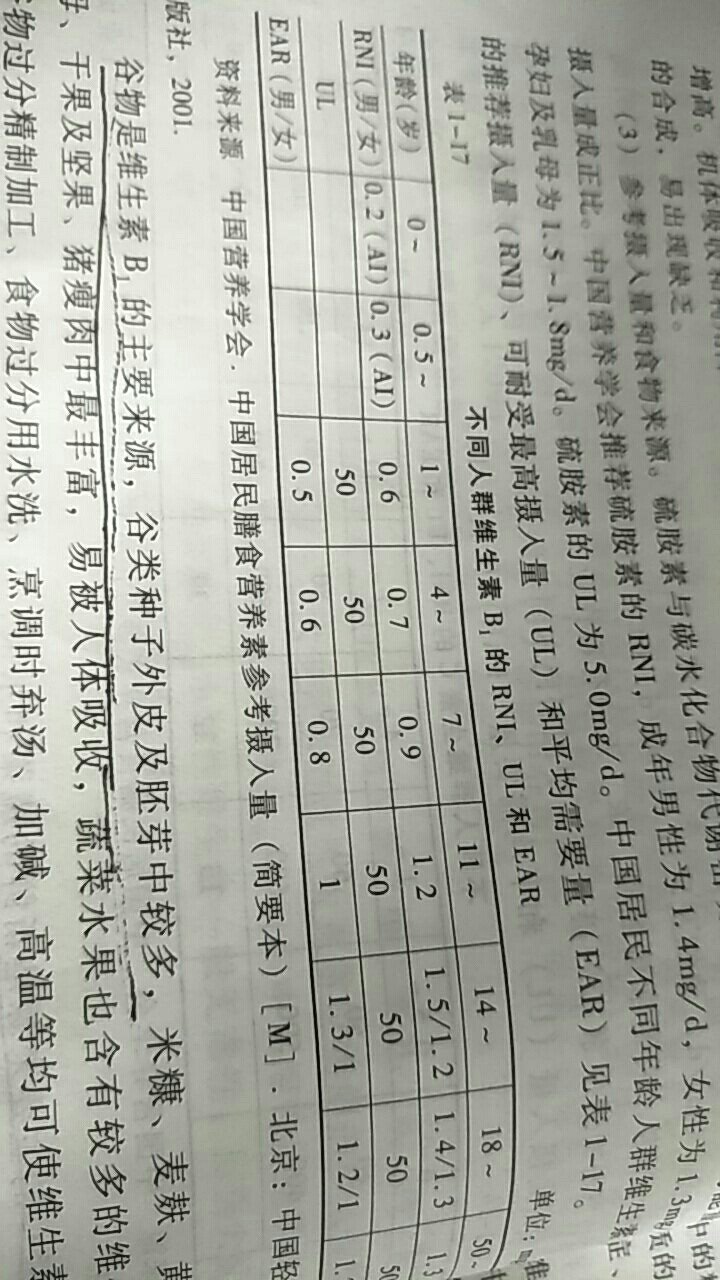 增高。机体吸收和
的合成，易出现缺乏。
（3）参考摄入量和食物来源。硫胺素与碳水化合物代谢
摄入量成正比。中国营养学会推荐硫胺素的 RNI，成年男性为 1.4mg/d，女性为 1.3mg
孕妇及乳母为 1.5～1.8mg/d。硫胺素的 UL 为 5.0mg/d。中国居民不同年龄人群维生素
的推荐摄入量（RNI）、可耐受最高摄入量（UL）和平均需要量（EAR）见表 1-17。
表 1-17 不同人群维生素 B₁ 的 RNI、UL 和 EAR 单位：
年龄（岁） 0～ 0.5～ 1～ 4～ 7～ 11～ 14～ 18～ 50～
RNI（男/女） 0.2（AI） 0.3（AI） 0.6 0.7 0.9 1.2 1.5/1.2 1.4/1.3 1.3
UL 50 50 50 50 50 50 50
EAR（男/女） 0.5 0.6 0.8 1 1.3/1 1.2/1 1.
资料来源 中国营养学会．中国居民膳食营养素参考摄入量（简要本）[M]．北京：中国轻
版社，2001.
谷物是维生素 B₁ 的主要来源，谷类种子外皮及胚芽中较多，米糠、麦麸、黄
、干果及坚果、猪瘦肉中最丰富，易被人体吸收，蔬菜水果也含有较多的维
物过分精制加工、食物过分用水洗、烹调时弃汤、加碱、高温等均可使维生素